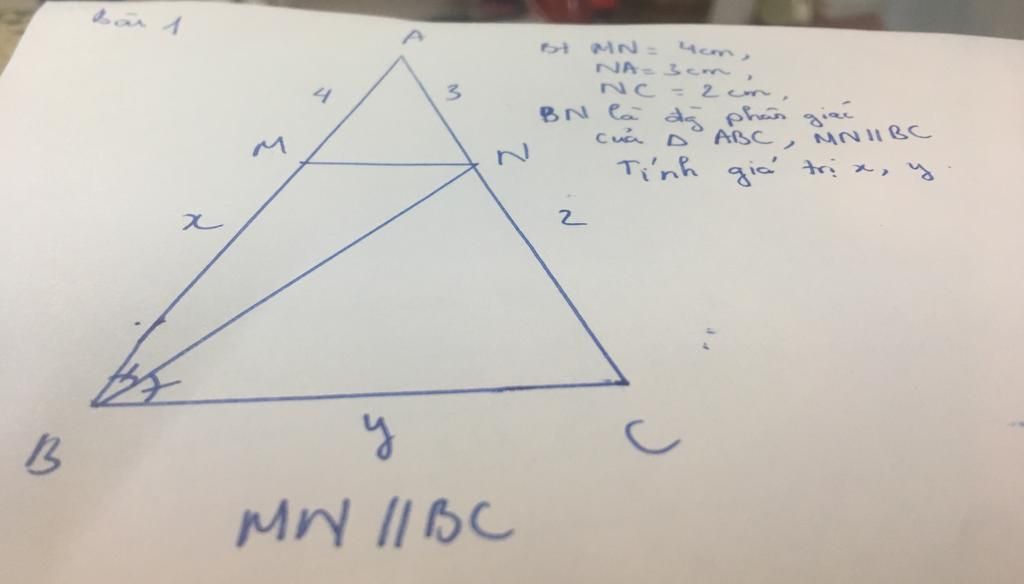 Bài 1
A
Bt MN = 4cm,
NA = 3cm,
NC = 2cm,
BN là đg phân giác
của Δ ABC, MN // BC
Tính giá trị x, y.
4
3
M
N
x
2
B
y
C
MN // BC